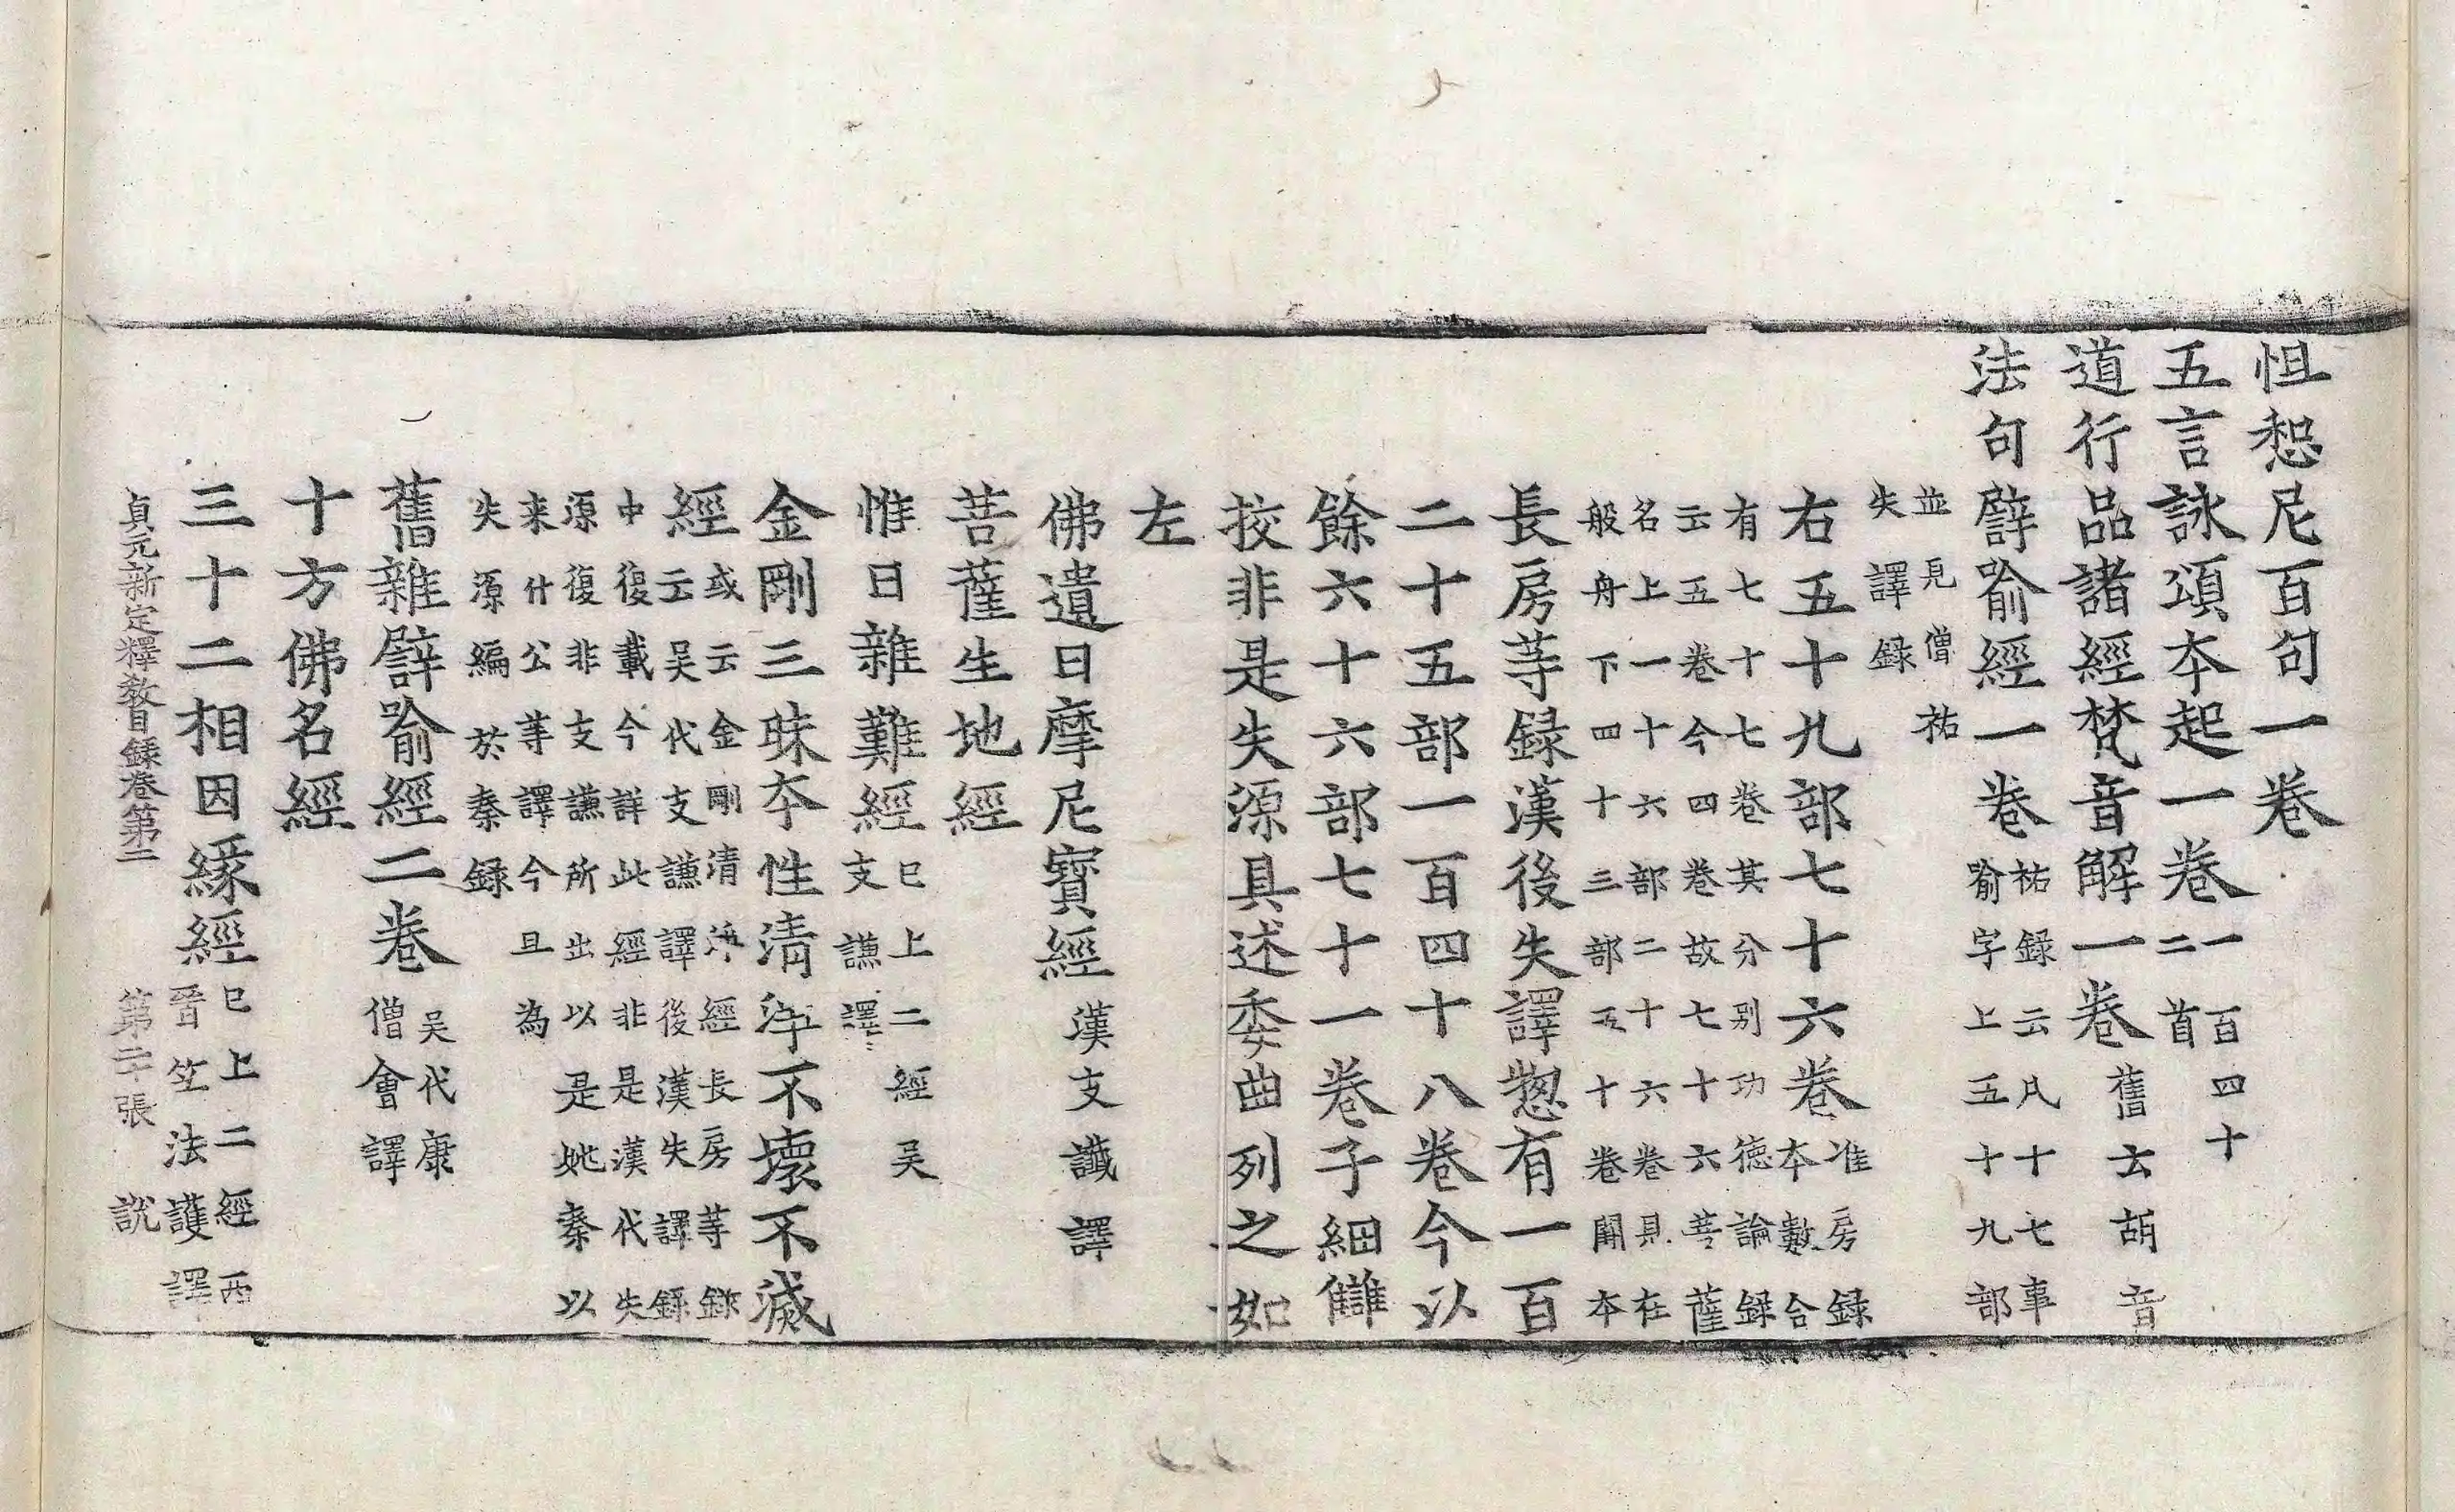 怛惒尼百句一卷
五言詠頌本起一卷一百四十
二首
道行品諸經梵音解一卷舊云胡音
法句譬喻經一卷祐録云凡十七事
喻字上五十九部
並見僧祐
失譯録
右五十九部七十六卷准房録
本數合
有七十七卷其分别功德論録
云五卷今四卷故七十六菩薩
名上一十六部二十六卷具在
般舟下四十三部五十卷闕本
長房等録漢後失譯惣有一百
二十五部一百四十八卷今以
餘六十六部七十一卷子細讎
挍非是失源具述委曲列之如
左
佛遺日摩尼寶經漢支讖譯
菩薩生地經
惟日雜難經已上二經吴
支謙譯
金剛三昧本性清淨不壞不滅
經或云金剛清淨經長房等録
云吴代支謙譯後漢失譯録
中復載今詳此經非是漢代失
源復非支謙所出以是姚秦以
来什公等譯今且為
失源編於秦録
舊雜譬喻經二卷吴代康
僧會譯
十方佛名經
三十二相因緣經已上二經西
晉竺法護譯
貞元新定釋教目録卷第二 第二十張 説